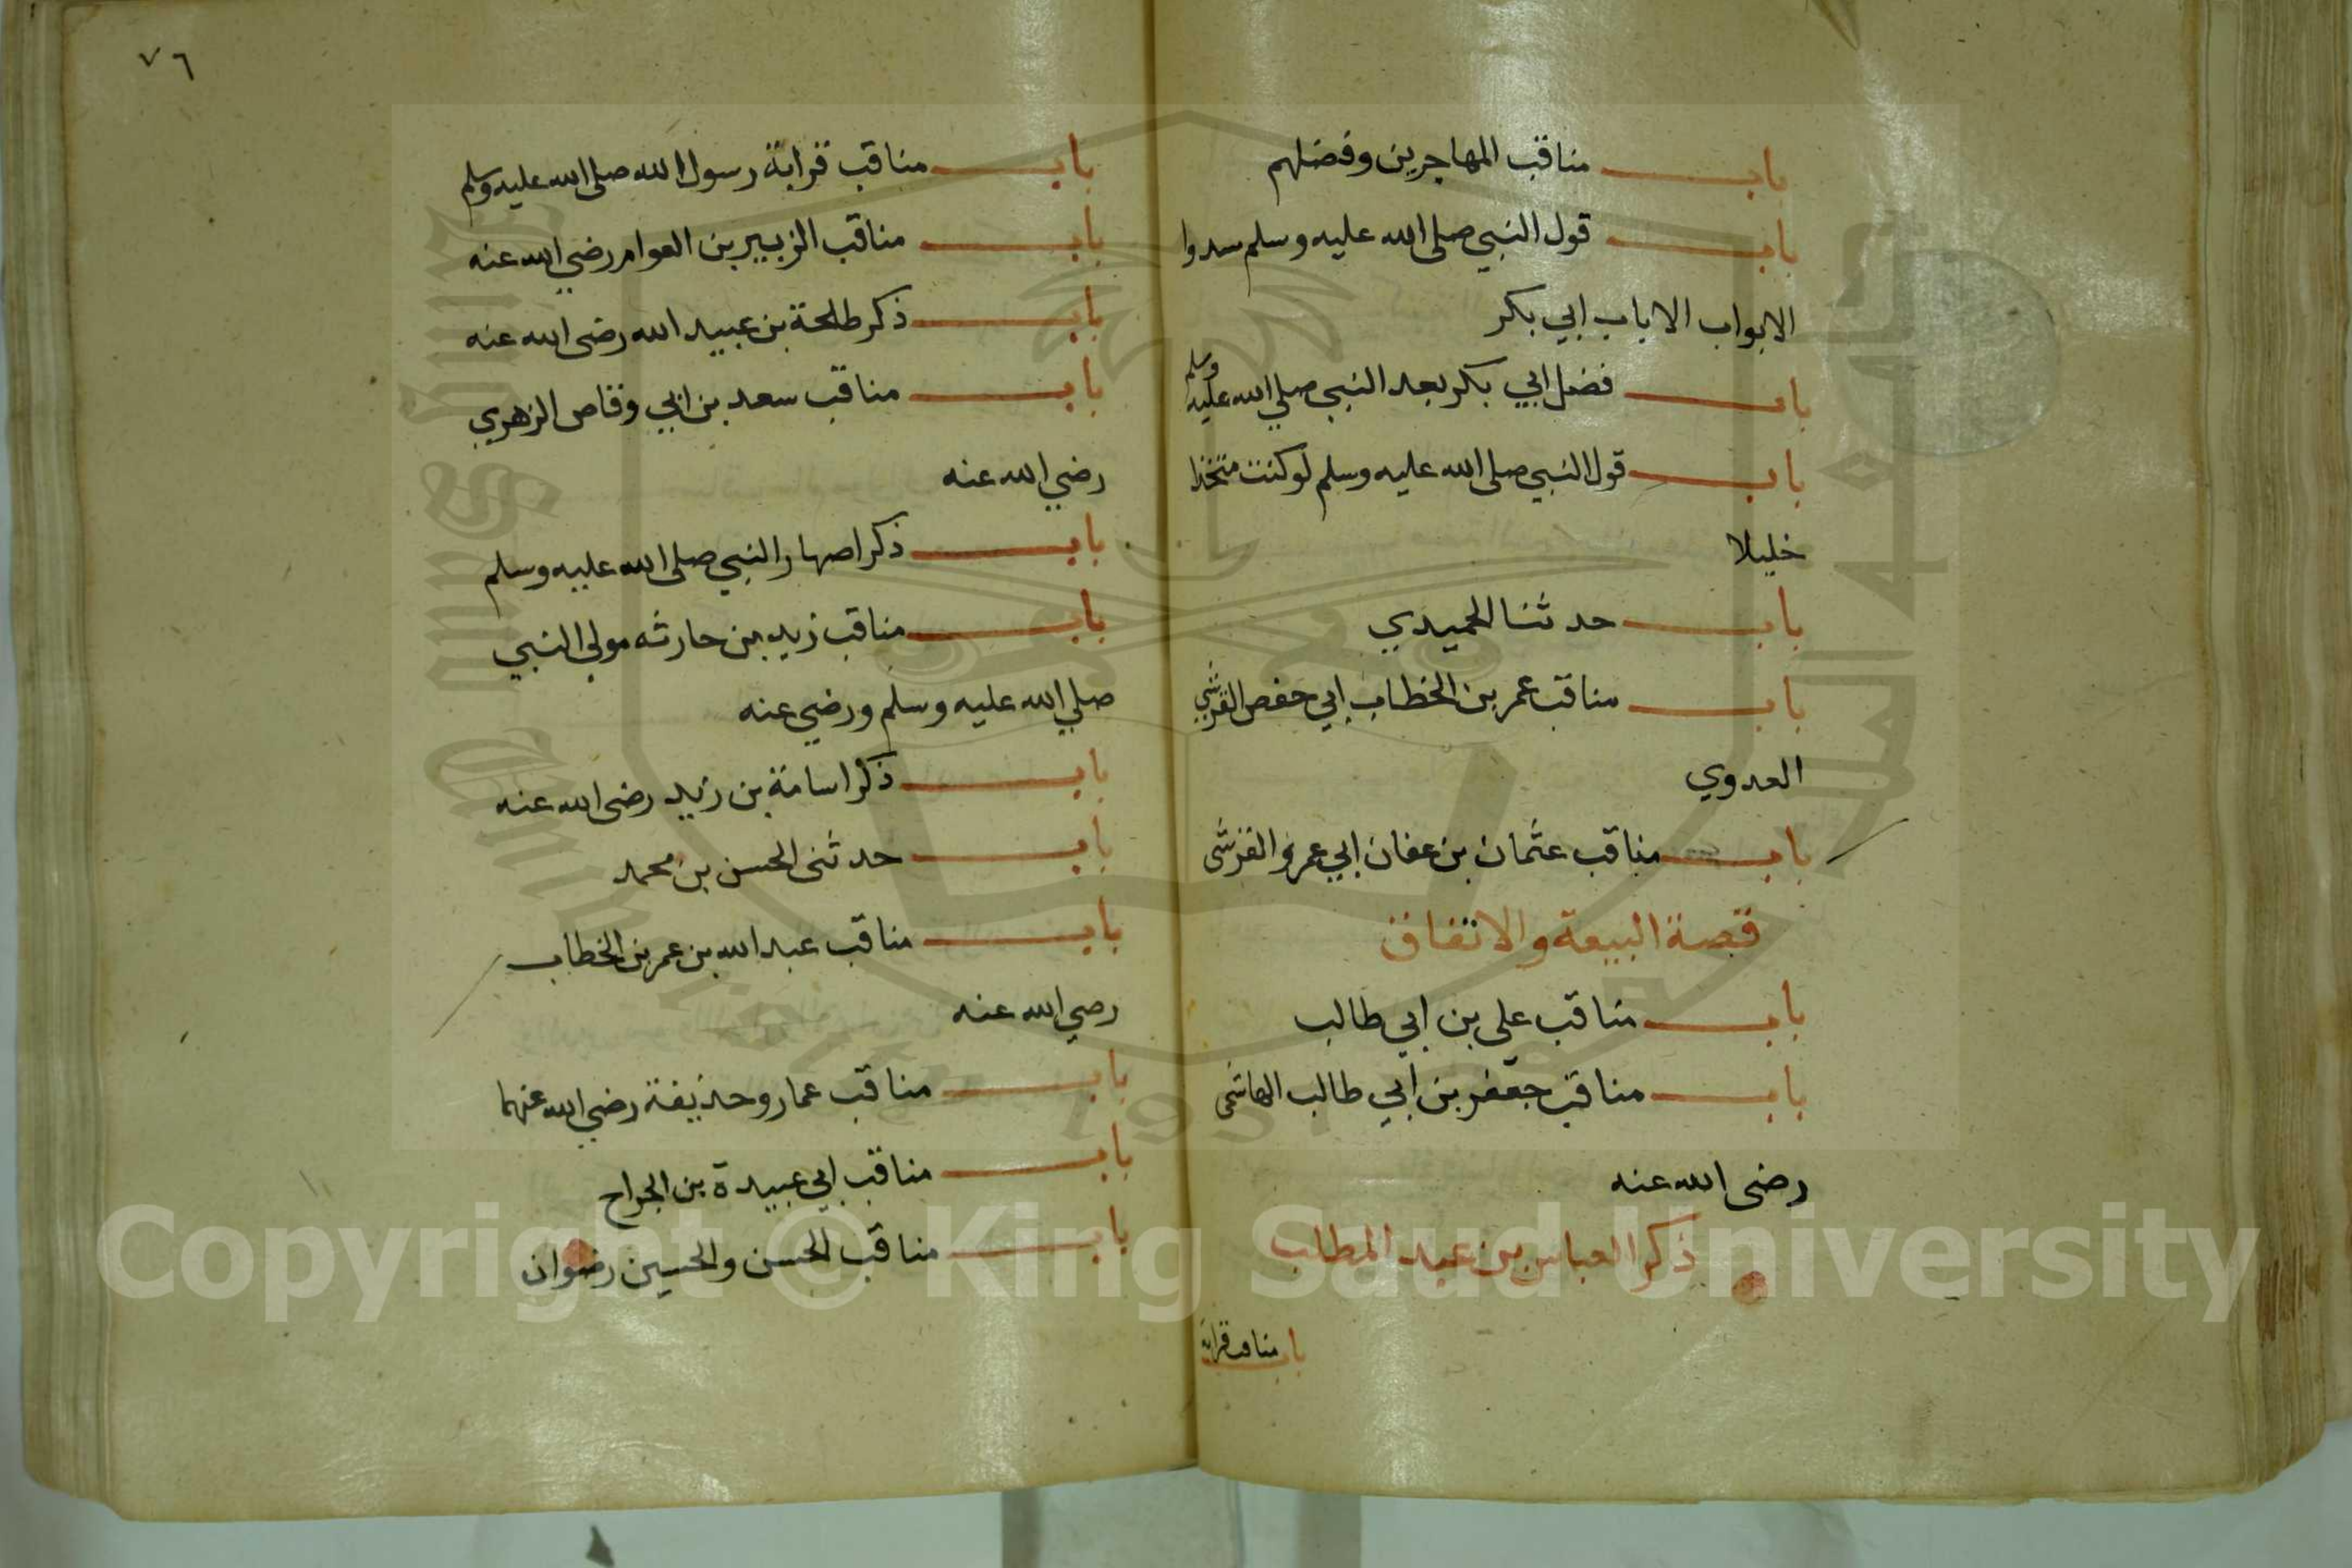 باب مناقب المهاجرين وفضلهم
باب قول النبي صلى الله عليه وسلم سدوا
الابواب الا باب ابي بكر
باب فضل ابي بكر بعد النبي صلي الله عليه وسلم
باب قول النبي صلى الله عليه وسلم لو كنت متخذا
خليلا
باب حدثنا الحميدي
باب مناقب عمر بن الخطاب ابي حفص القرشي
العدوي
باب مناقب عثمان بن عفان ابي عمرو القرشى
قصة البيعة والاتفاق
باب مناقب على بن ابي طالب
باب مناقب جعفر بن ابي طالب الهاشمى
رضى الله عنه
ذكر العباس بن عبد المطلب
باب مناقب قرابة
٧٦
باب مناقب قرابة رسول الله صلى الله عليه وسلم
باب مناقب الزبير بن العوام رضي الله عنه
باب ذكر طلحة بن عبيد الله رضى الله عنه
باب مناقب سعد بن ابي وقاص الزهري
رضي الله عنه
باب ذكر اصهار النبي صلى الله عليه وسلم
باب مناقب زيد بن حارثه مولي النبي
صلي الله عليه وسلم ورضي عنه
باب ذكر اسامة بن زيد رضى الله عنه
باب حدثنى الحسن بن محمد
باب مناقب عبد الله بن عمر بن الخطاب
رضي الله عنه
باب مناقب عمار وحذيفة رضي الله عنهما
باب مناقب ابي عبيدة بن الجراح
باب مناقب الحسن والحسين رضوان
Copyright © King Saud University
1957